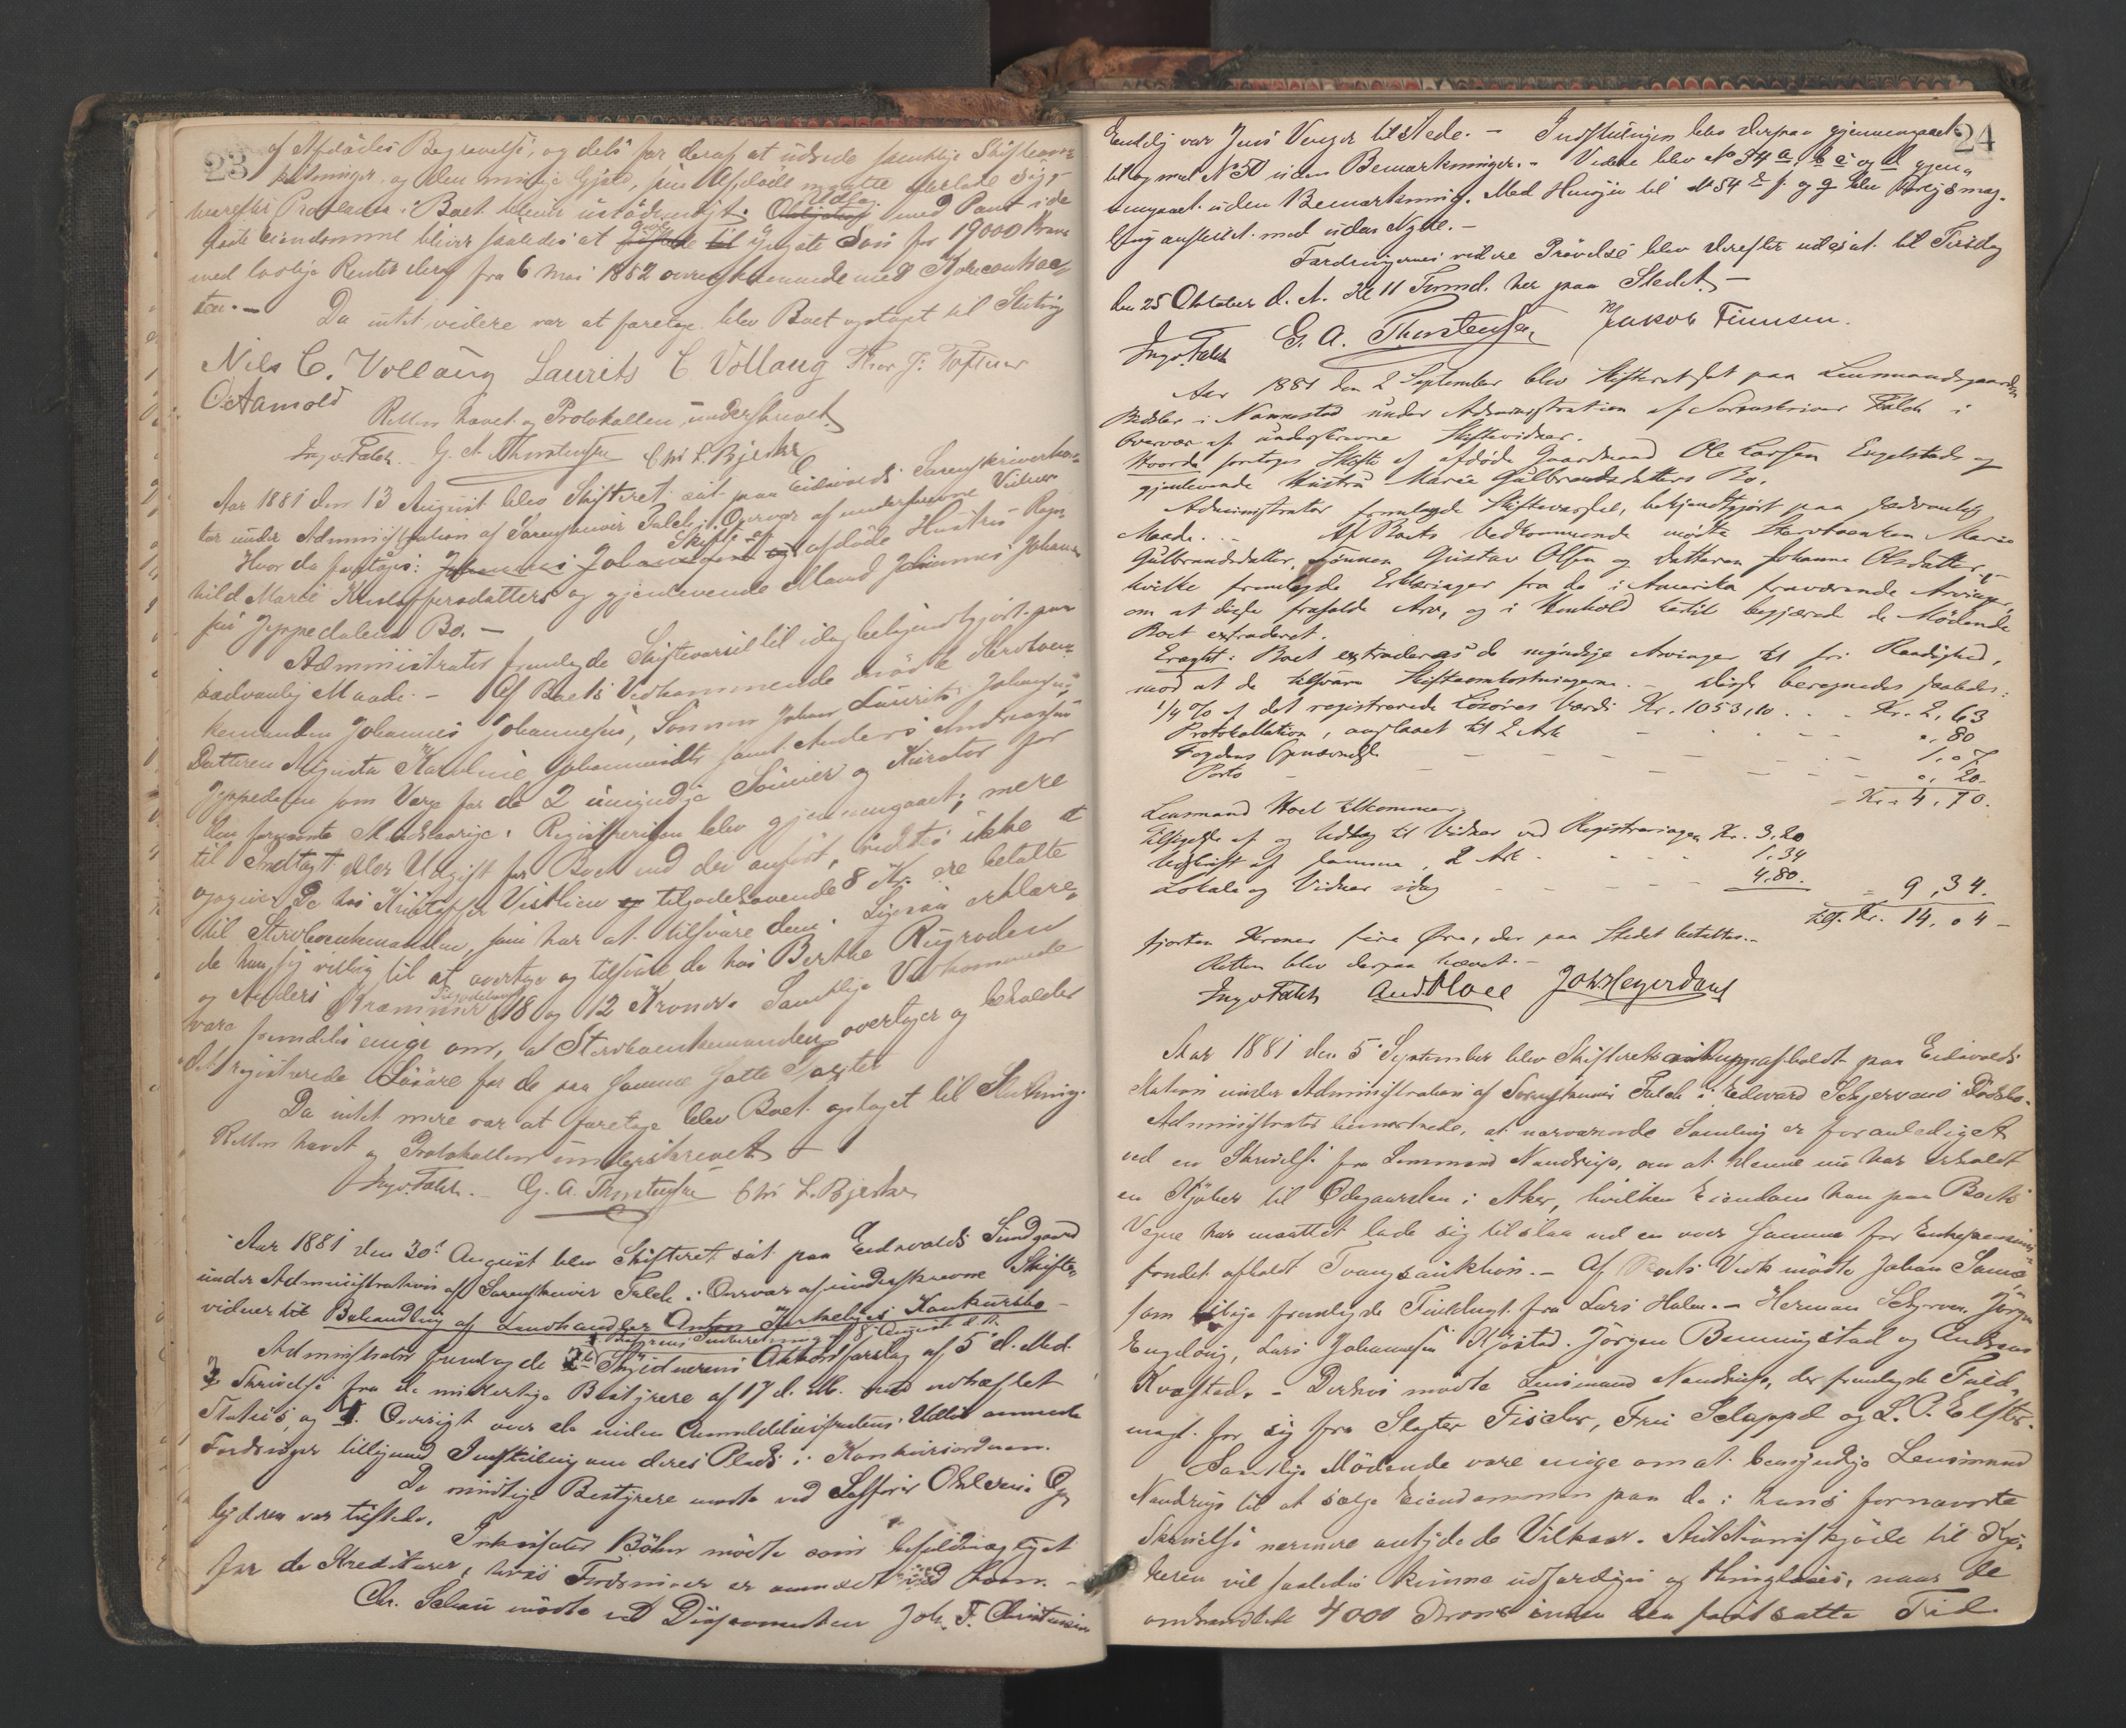 23
af Afdødes Begravelse, og dels for deraf at udrede samtlige Skifteom-
kostninger og den mulige Gjæld, som Afdøde maatte efterlade sig,
Provenuen i Boet bliver ustødeligt. Udlæg med Pant i de
faste Eiendomme bliver saaledes at yngste Søn for 19000 Kroner
med lovlige Renter deraf fra 6 Mai 1852 overensstemmende med Kjøbecontrac-
ten. —
Da intet videre var at foretage blev Boet optaget til Slutning
Nils C. Vollaug Laurits C Vollaug Thor J. Toftner
O. Aamold
Retten hævet og Protokollen underskrevet
Ingv. Falch. G. A. Thorstensen Chr. L. Bjerke
Aar 1881 den 13 August blev Skifteret sat paa Eidsvolds Sorenskriverkon-
tor under Administration af Sorenskriver Falch i Overvær af underskrevne Vidner
Hvor da foretages: Johannes Johannesens og Skifte af afdøde Hustru Ragn-
hild Marie Kristoffersdatters og gjenlevende Mand Johannes Johannes-
sen Jeppedalens Bo. —
Administrator fremlagde Skiftevarsel til idag bekjendtgjort paa
sædvanlig Maade. — Af Boets Vedkommende mødte Stervboen-
kemanden Johannes Johannesen, Sønnen Johan Laurits Johannesen,
Datteren Augusta Karoline Johannesdtr samt Anders Andreassen
Jeppedalen som Værge for de 2 umyndige Sønner og Kurator for
den fornævnte Mindreaarige. Registreringen blev gjennemgaaet; mere
til Indtægt eller Udgift for Boet end der anført, vidstes ikke at
opgives. De hos Kristoffer Vistlien tilgodehavende 8 Kr. ere betalte
til Stervboenkemanden, som har at tilsvare dem. Ligesaa erklære-
de han sig villig til at overtage og tilsvare de hos Berthe Rugroden
og Anders Kræmmer Jeppedalen 18 og 12 Kroner. Samtlige Vedkommende
vare fremdeles enige om, at Stervboenkemanden overtager og beholder
det registrerede Løsøre for de paa samme satte Taxter
Da intet mere var at foretage blev Boet optaget til Slutning.
Retten hævet og Protokollen underskrevet —
Ingv. Falch. — G. A. Thorstensen Chr L. Bjerke
Aar 1881 den 30te August blev Skifteret sat paa Eidsvolds Sundgaard
under Administration af Sorenskriver Falch i Overvær af underskrevne Skifte-
vidner til Behandling af Landhandler Anton Kirkebyes Konkursbo —
Administrator fremlagde Skyldnerens Akkordforslag af 5 d. Md.
3, Skrivelse fra de midlertidige Bestyrere af 17 d. M. med vedhæftet
Status, og 4. Oversigt over de inden Anmeldelsesfristens Udløb anmeldte
Fordringer tilligemed Indstilling om deres Plads i Konkursordnen.
De midtlige Bestyrere mødte ved Sagfører Ohlsens. Op-
byderen var tilstede.
Inkassator Bøhn mødte som befuldmægtiget
for de Kreditorer, hvis Fordringer er anmeldt ved ham. —
Chr. Schou mødte ved Disponenten Joh. F. Christensen
24
Endelig var Jens Venger tilstede. — Indstillingen blev derpaa gjennemgaaet
til og med No 50 uden Bemærkninger. — Videre blev No 54 a, b c og d gjen-
nemgaaet uden Bemærkning. Med Hensyn til No 54 e f. og g blev Forligsmæg-
ling anstillet men uden Nytte. —
Fordringernes videre Prøvelse blev derefter udsat til Tirsdag
den 25 Oktober d. A. Kl 11 Formd. her paa Stedet. —
Ingv. Falch G. A. Thorstensen N Jakob Finnsen.
Aar 1881 den 2 September blev Skifteret sat paa Lensmandsgaarden
i Nannestad under Administration af Sorenskriver Falch i
Overvær af underskrevne Skiftevidner.
Hvorda foretoges Skifte af afdøde Gaardmand Ole Larsen Engelstads og
gjenlevende Hustru Marie Gulbrandsdatters Bo.
Administrator fremlagde Skiftevarslet, bekjendtgjort paa sædvanlig
Maade. — Af Boets Vedkommende mødte Stervboenken Marie
Gulbrandsdatter, Sønnen Gustav Olsen og Datteren Johanne Olsdatter, —
hvilke fremlagde Erklæringer fra de i Amerika fraværende Arvinger,
om at disse frafaldt Arv, og i Henhold hertil begjærede de Mødende
Boet extraderet.
Eragtet: Boet extraderes de myndige Arvinger til fri Raadighed,
mod at de tilsvare Skifteomkostningerne. — Disse beregnedes saaledes:
1/4 % af det registrerede Løsøres Værdi Kr. 1053,10 . . . Kr. 2,63
Protokollation, anslaaet til 2 Ark — — — ". 80
Fogdens Opnævnelse — — — 1.07
Porto — — — 0, 20.
= Kr. = 4,70.
Lensmand Hoel tilkommer:
Tilsigelse af og Udlæg til Vidner ved Registreringen Kr. 3,20
Udskrift af samme, 2 Ark . . . 1,34
Lokale og Vidner idag — — — 4,80.
= 9,34.
Tils. Kr. 14,04 —
fjorten Kroner fire Øre, der paa Stedet betaltes. —
Retten blev derpaa hævet. —
Ingv. Falch And. Hoel Joh. Heyerdahl
Aar 1881 den 5 September blev Skifteretssamling afholdt paa Eidsvolds
Station under Administration af Sorenskriver Falch i Edvard Schjervens Dødsbo.
Administrator bemærkede, at nærværende Samling er foranlediget
ved en Skrivelse fra Lensmand Nandrup, om at denne nu har erholdt
en Kjøber til Ødegaarden i Aker, hvilken Eiendom han paa Boets
Vegne har maattet lade sig tilslaa ved en over samme for Enkepensions-
fondet afholdt Tvangsauktion. — Af Boets Vedk mødte Johan Samo
som tillige fremlagde Fuldmagt fra Lars Holm. — Herman Schjerven, Jørgen
Engelaug, Lars Johannesen Kjøstad. Jørgen Benningstad og Andreas
Kvæstad. — Derhos mødte Lensmand Nandrup, der fremlagde Fuld-
magt for sig fra Slagter Fischer, Frue Schappel og L. P. Elster.
Samtlige Mødende vare enige om at bemyndige Lensmand
Nandrup til at sælge Eiendommen paa de i hans fornævnte
Skrivelse nærmere antydede Vilkaar. Auktionsskjøde til Kjø-
beren vil saaledes kunne udfærdiges og thinglæses, naar de
omhandlede 4000 Kroner inden den fastsatte Tid